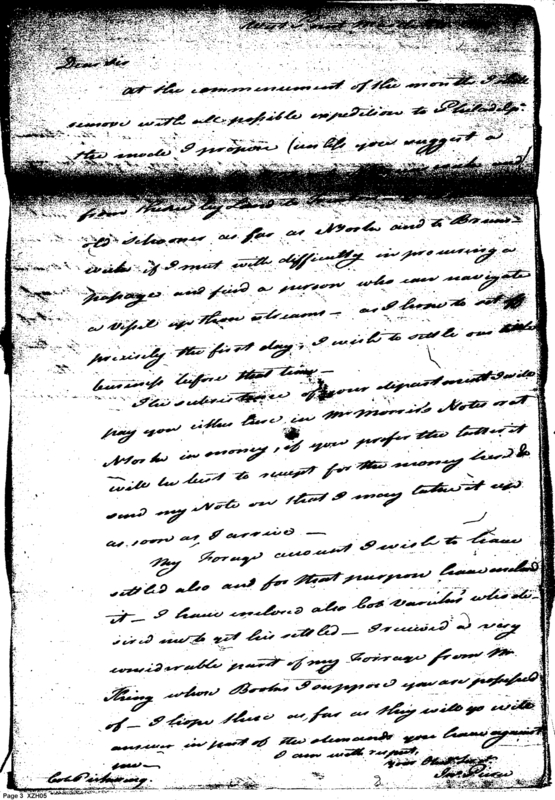 West Point
Dear Sir
At the commencement of the month I shall
remove with all possible expedition to Philadelpa
the mode I propose (unless you suggest a
from thence by Land to
old Schooner as far as NYork and to Bruns-
wick if I met with difficulty in procuring a
passage and find a person who can navigate
a vessel up them streams - as I have to set off
precisely the first day, I wish to settle our little
business before that time -
The subsistence of your department I will
pay you either here in Mr Morris's Notes or at
NYork in money, if you prefer the latter it
will be best to receipt for the money here &
send my Note on that I may take it up
as soon as I arrive -
My Forage account I wish to have
settled also and for that purpose have enclosed
it - I have enclosed also Cob Varicks who de-
sired me to get his settled - I received a very
considerable part of my Forrage from Mr
King whose Books I suppose you are possessed
of - I hope these as far as they will go will
answer in part of the demands you have against
me -
I am with respect,
your Obed Servt
Col. Pickering.
Jno Pierce
Page 3 XZH05